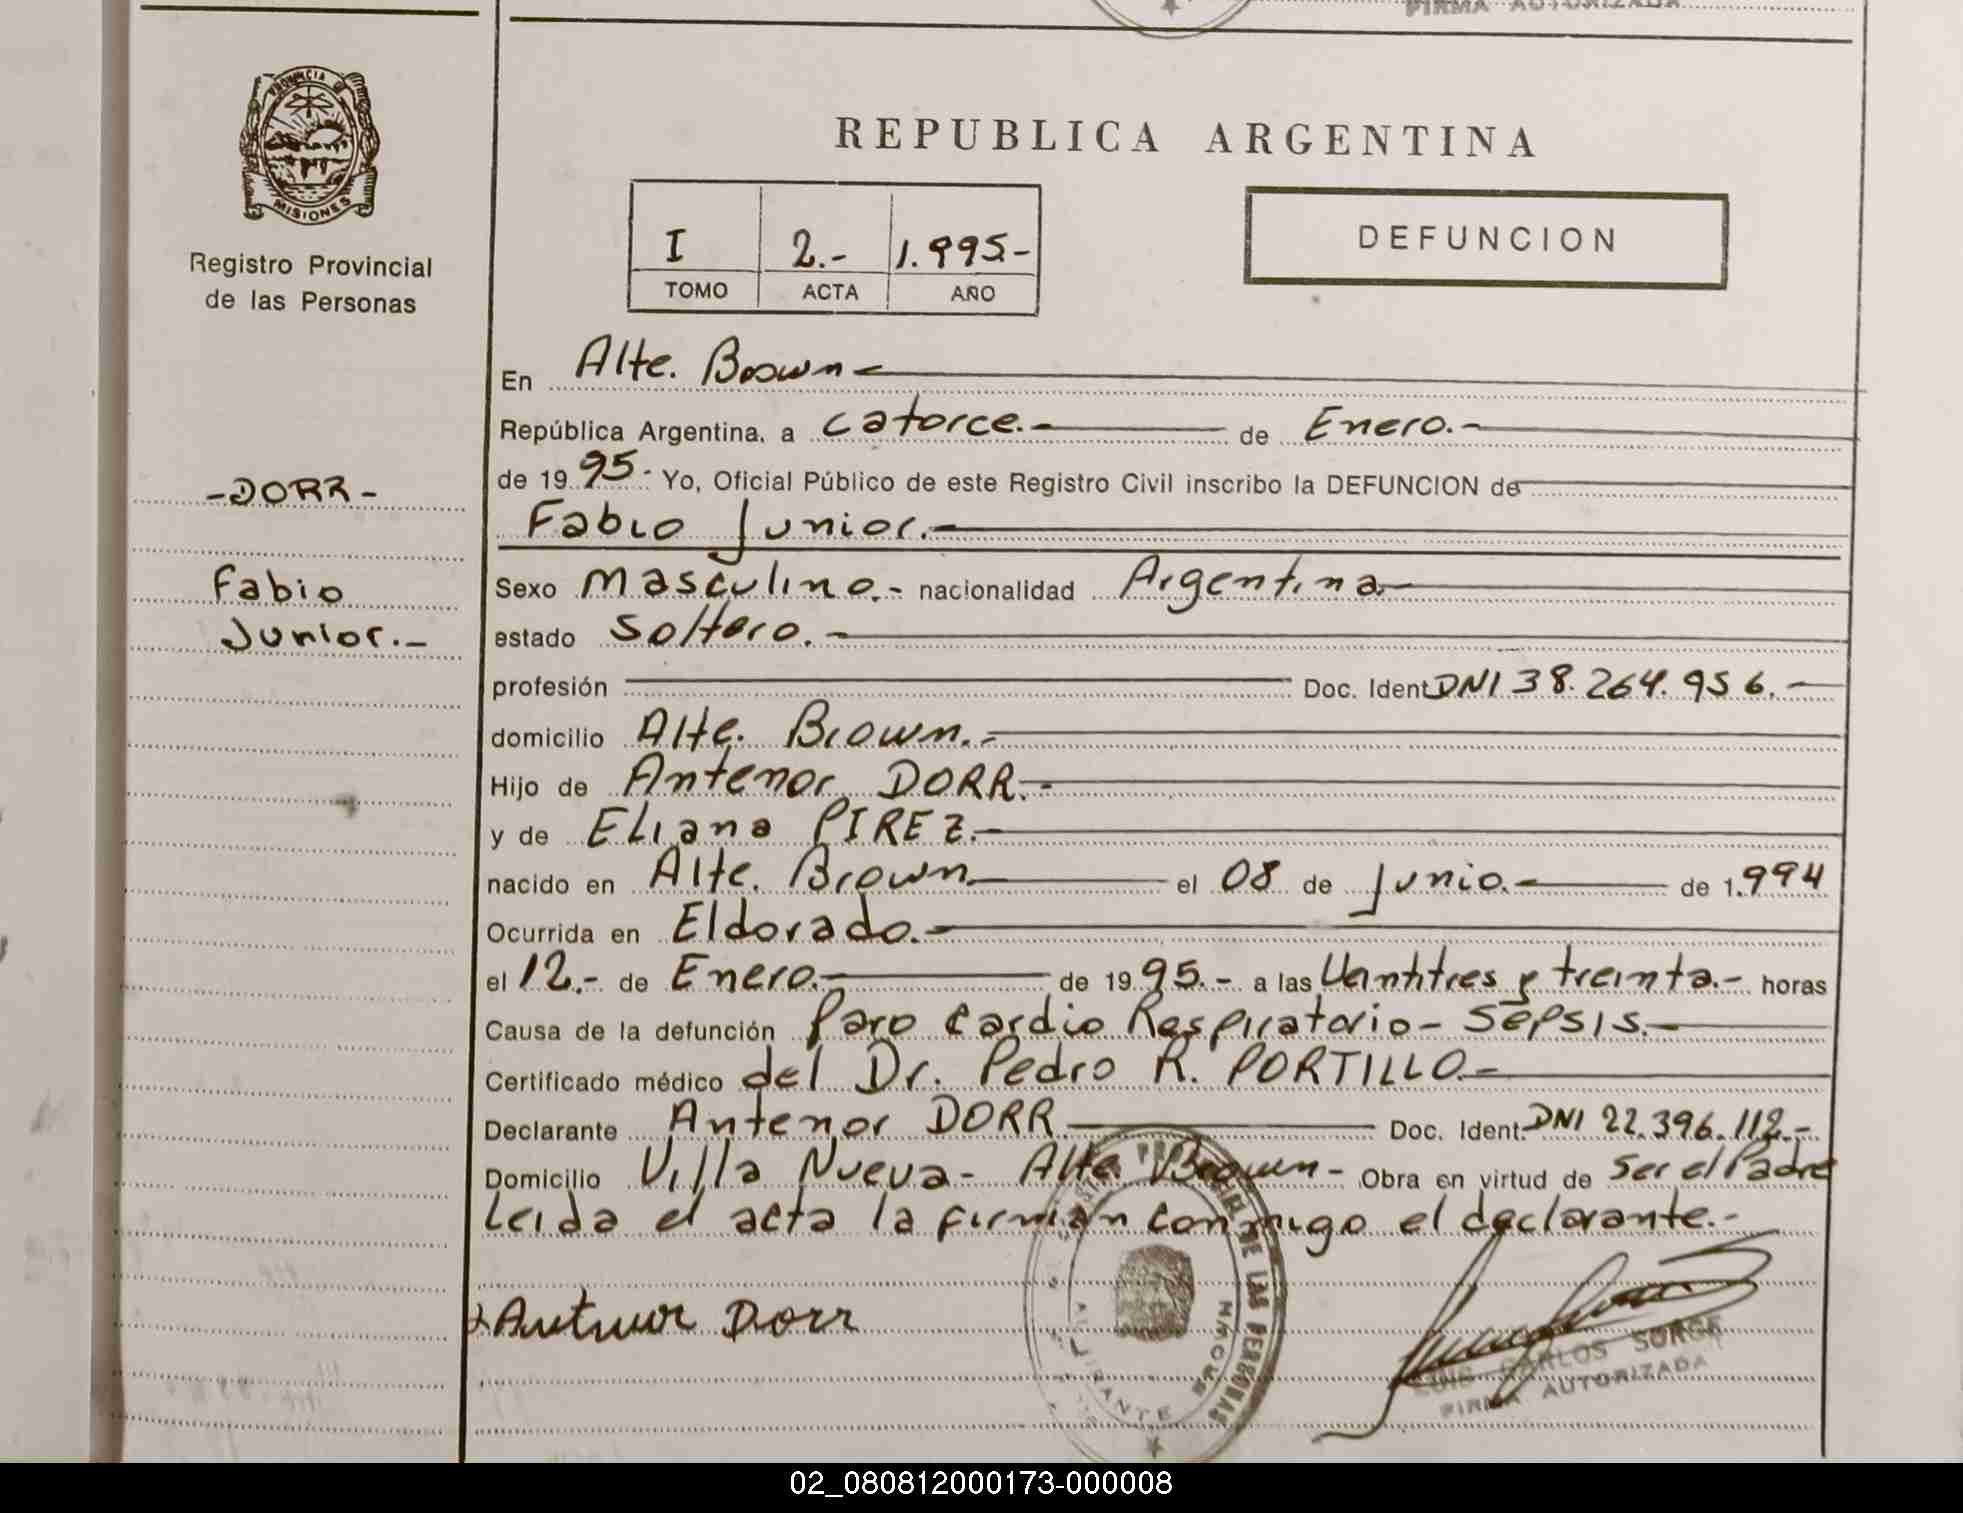 FIRMA AUTORIZADA
PROVINCIA DE
MISIONES
Registro Provincial
de las Personas
REPUBLICA ARGENTINA
I 2.- 1.995.-
TOMO ACTA AÑO
DEFUNCION
En Alte. Brown
República Argentina, a catorce.- de Enero.-
de 19 95.- Yo, Oficial Público de este Registro Civil inscribo la DEFUNCION de
-DORR-
Fabio Junior.-
Fabio
Junior.-
Sexo Masculino.- nacionalidad Argentina
estado Soltero.-
profesión Doc. Ident DNI 38.264.956.-
domicilio Alte. Brown.-
Hijo de Antenor DORR.-
y de Eliana PIREZ.-
nacido en Alte. Brown el 08 de Junio.- de 1.994
Ocurrida en Eldorado.-
el 12.- de Enero.- de 1995.- a las Veintitres y treinta.- horas
Causa de la defunción Paro Cardio Respiratorio - Sepsis.-
Certificado médico del Dr. Pedro R. PORTILLO.-
Declarante Antenor DORR Doc. Ident. DNI 22.396.112.-
Domicilio Villa Nueva - Alte. Brown - Obra en virtud de Ser el Padre
Leida el acta la firman conmigo el declarante.-
Antenor Dorr
DE LAS PERSONAS
ALMIRANTE BROWN
LUIS CARLOS SORGE
FIRMA AUTORIZADA
02_080812000173-000008